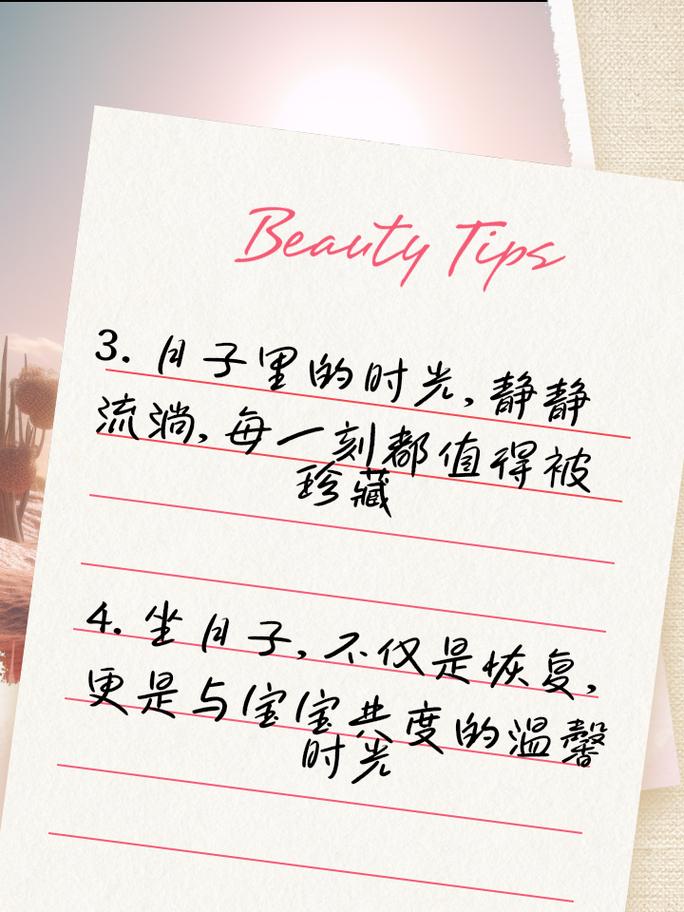 Beauty Tips
3. 月子里的时光,静静
流淌,每一刻都值得被
珍藏
4. 坐月子,不仅是恢复,
更是与宝宝共度的温馨
时光